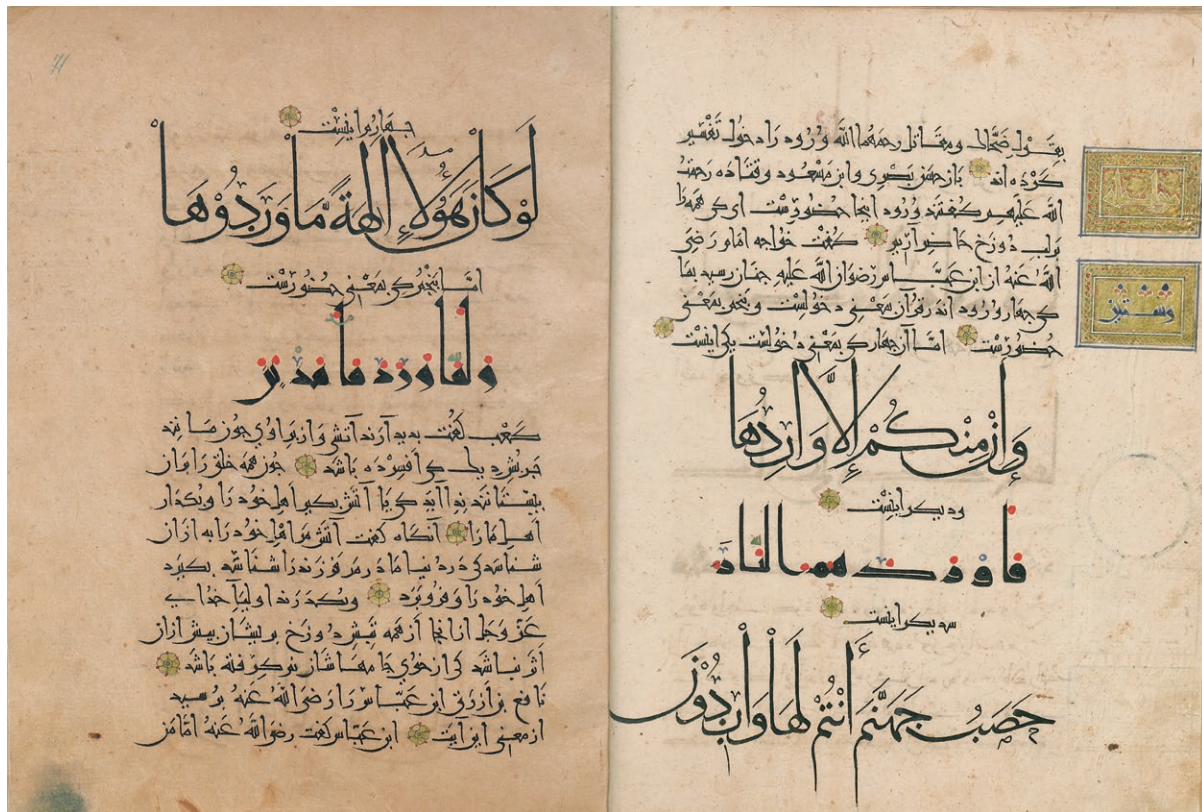 بقول ضحاك ومقاتل رحمهما الله ورود را دخول تفسير
كرده اند باز حسن بصرى وابن مسعود وقتاده رحمت
الله عليهم كفتند ورود اينجا حضورست اى كى همه را
بر لب دوزخ حاضر آريم كفت خواجه امام رضى
الله عنه از ابن عباس رضوان الله عليه جنان رسيد بما
كى جهار ورود اندر قرآن بمعنى دخولست وبنجم بمعنى
حضورست اما آن جهار كى بمعنى دخولست يكى اينست
وَإِنْ مِنْكُمْ إِلَّا وَارِدُهَا
وديكر اينست
فاوردهم النار
سديكر اينست
حَصَبُ جَهَنَّمَ أَنْتُمْ لَهَا وَارِدُونَ
71
جهارم اينست
لَوْ كَانَ هَؤُلَاءِ الِهَةً مَا وَرَدُوْهَا
اما بنجم كى بمعنى حضورست
ولما ورد ما مدين
كعب كفت بديد آرند آتشى واز بر وى جون مانند
جربش ديك كى افسرده باشد جون همه خلق را بر آن
بيستانند ندا آيد كى يا آتش بكير اهل خود را وبكذار
اهل ما را آنكاه كفت آتش مر اهل خود را به از آن
شناسد كى در دنيا مادر مر فرزند را شناسد بكيرد
اهل خود را وفرو برد وبكذرند اوليآ خداى
عز وجل از آنجا از همه تبش دوزخ بريشان بيش از آن
اثر نباشد كى از خوى جامهاشان نم كرفته باشد
نافع بن ازرق ابن عباس را رضى الله عنه برسيد
از معنى اين آيت ابن عباس كفت رضى الله عنه اما من